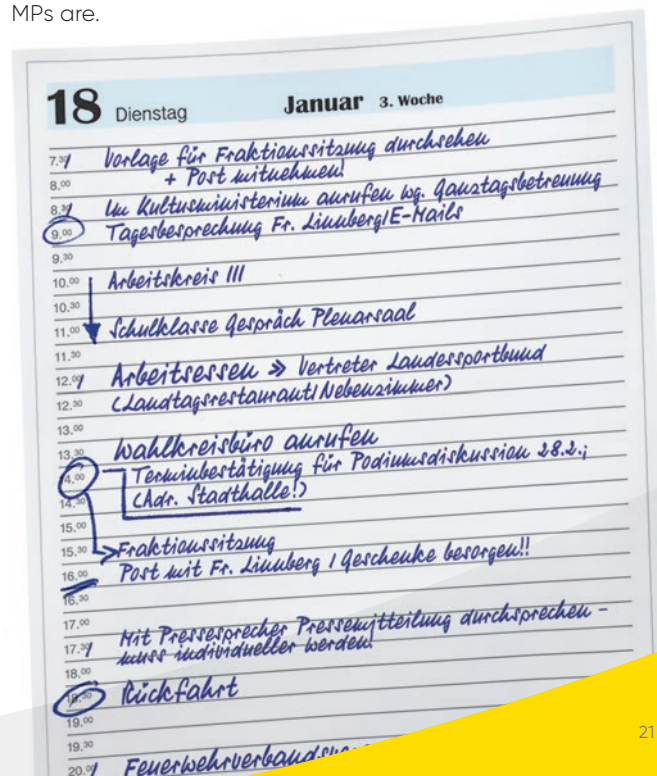 MPs are.
18 Dienstag Januar 3. Woche
7.30 Vorlage für Fraktionssitzung durchsehen
8.00 + Post mitnehmen!
8.30 Im Kultusministerium anrufen wg. Ganztagsbetreuung
9.00 Tagesbesprechung Fr. Linnberg/E-Mails
9.30
10.00 Arbeitskreis III
10.30
11.00 Schulklasse Gespräch Plenarsaal
11.30
12.00 Arbeitsessen » Vertreter Landessportbund
12.30 (Landtagsrestaurant/Nebenzimmer)
13.00
13.30 Wahlkreisbüro anrufen
14.00 Terminbestätigung für Podiumsdiskussion 28.2.;
14.30 (Adr. Stadthalle!)
15.00
15.30 Fraktionssitzung
16.00 Post mit Fr. Linnberg / Geschenke besorgen!!
16.30
17.00
17.30 Mit Pressesprecher Pressemitteilung durchsprechen –
muss individueller werden!
18.00
18.30 Rückfahrt
19.00
19.30
20.00
21